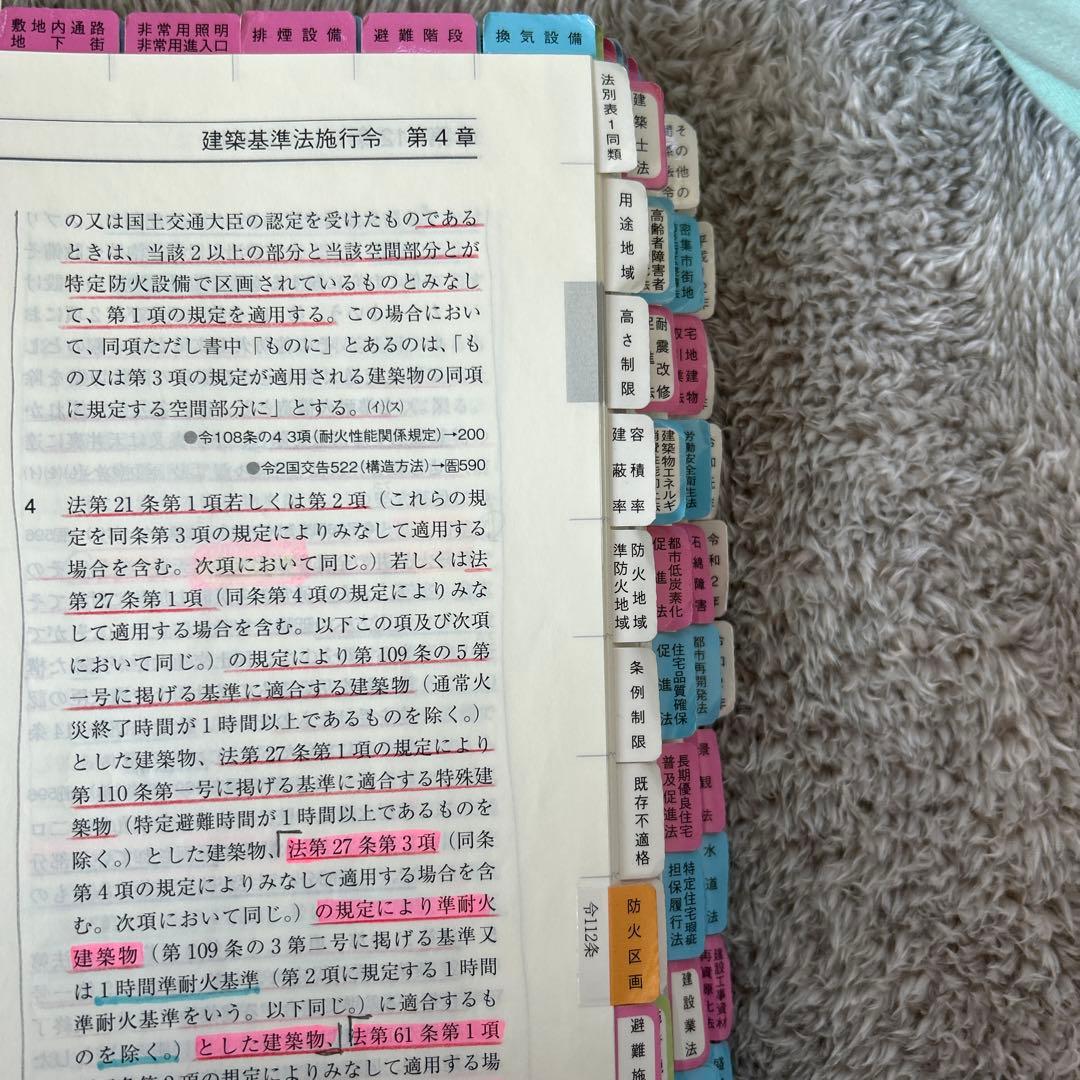 敷地内通路
地下街
非常用照明
非常用進入口
排煙設備
避難階段
換気設備
建築基準法施行令 第4章
の又は国土交通大臣の認定を受けたものである
ときは、当該2以上の部分と当該空間部分とが
特定防火設備で区画されているものとみなし
て、第1項の規定を適用する。この場合におい
て、同項ただし書中「ものに」とあるのは、「も
の又は第3項の規定が適用される建築物の同項
に規定する空間部分に」とする。(イ)(ス)
●令108条の4 3項(耐火性能関係規定)→200
●令2国交告522(構造方法)→告590
4 法第21条第1項若しくは第2項(これらの規
定を同条第3項の規定によりみなして適用する
場合を含む。次項において同じ。)若しくは法
第27条第1項(同条第4項の規定によりみな
して適用する場合を含む。以下この項及び次項
において同じ。)の規定により第109条の5第
一号に掲げる基準に適合する建築物(通常火
災終了時間が1時間以上であるものを除く。)
とした建築物、法第27条第1項の規定により
第110条第一号に掲げる基準に適合する特殊建
築物(特定避難時間が1時間以上であるものを
除く。)とした建築物、法第27条第3項(同条
第4項の規定によりみなして適用する場合を含
む。次項において同じ。)の規定により準耐火
建築物(第109条の3第二号に掲げる基準又
は1時間準耐火基準(第2項に規定する1時間
準耐火基準をいう。以下同じ。)に適合するも
のを除く。)とした建築物、法第61条第1項
項の規定によりみなして適用する場
法別表1同類
用途地域
高さ制限
容積率
建蔽率
防火地域
準防火地域
条例制限
既存不適格
防火区画
令112条
避難施
建築士法
高齢者障害者
耐震改修
建築物エネルギ
都市低炭素化
促進法
住宅品質確保
促進法
長期優良住宅
普及促進法
特定住宅瑕疵
担保履行法
建設業法
その他の
密集市街地
宅地建物
労働安全衛生法
石綿障害
都市再開発法
景観法
水道法
建設工事資材
再資源化法
令和2年